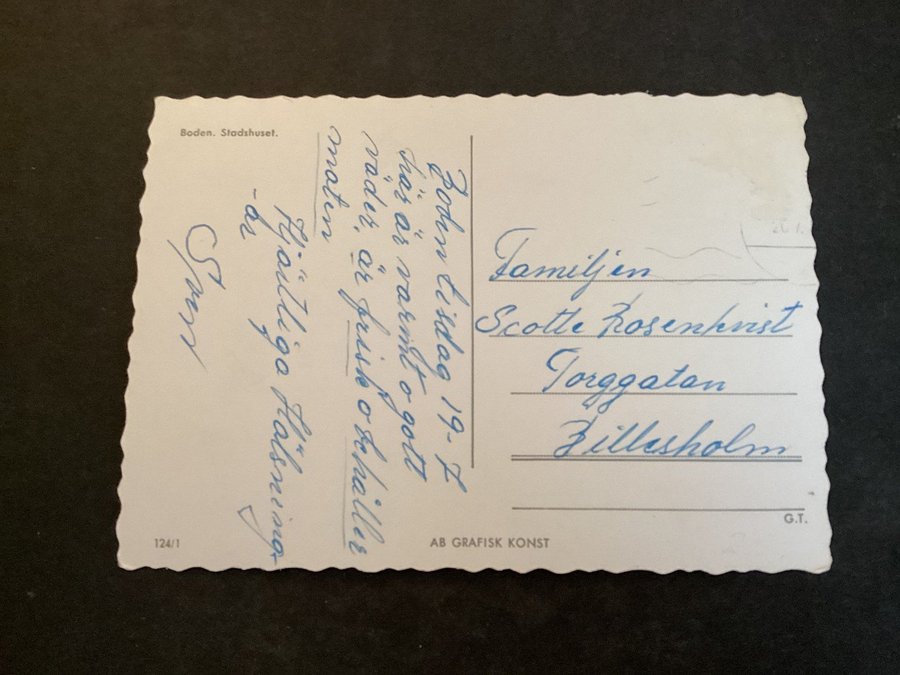 Boden. Stadshuset.
Boden tisdag 19-7
här är varmt o gott
väder, är frisk o behåller
maten
Hjärtliga Hälsning
-ar
Familjen
Scotte Rosenkvist
Torggatan
Billesholm
G.T.
124/1
AB GRAFISK KONST